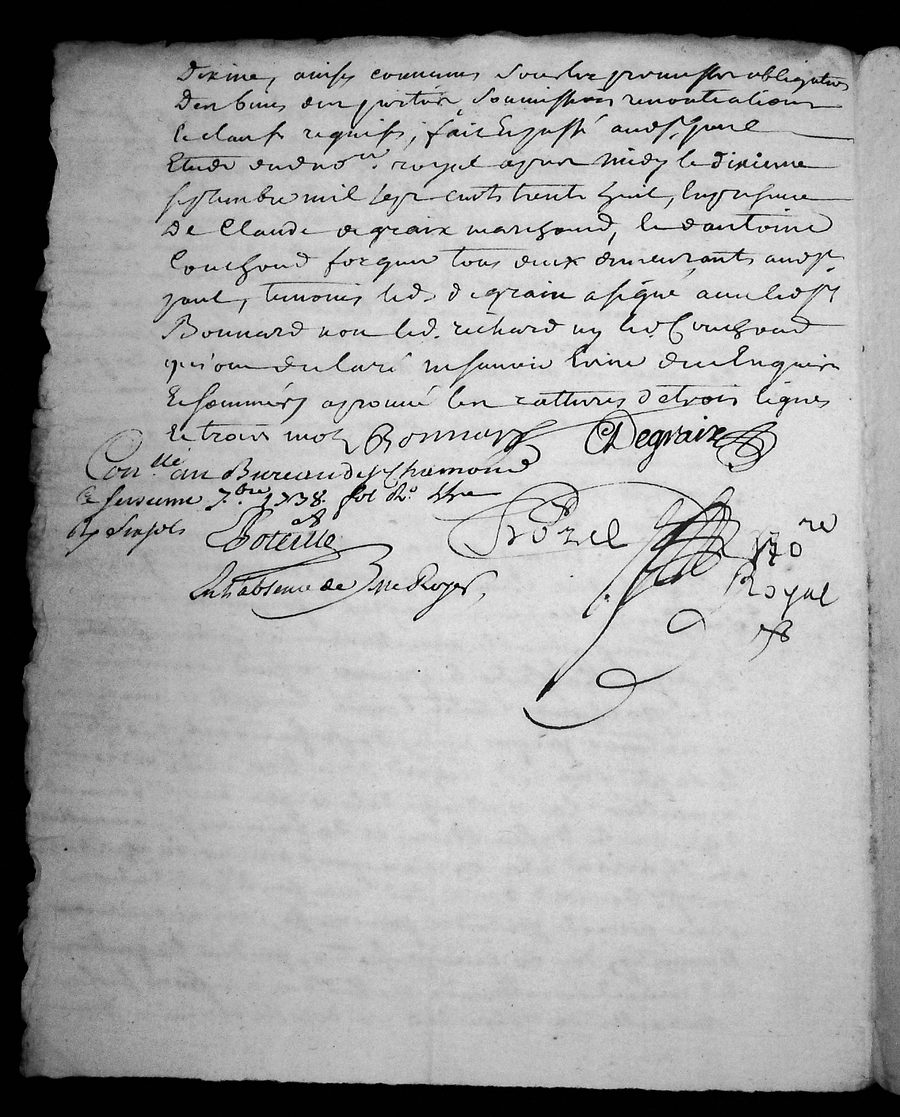 dixine, ainsy convenu sous les promesses obligations
Des biens des parties, soumissions renonciations
& clauses requises, fait & passé aud. st. paul
Etude dud. no.re royal apres midy le dixieme
septembre mil sept cents trente huit, en presence
De Claude degraix marchand, & d'antoine
Couchoud forgeur tous deux demeurants aud. st
paul, temoins led. degraix a signé avec led. sr
Bonnard non led. richard ny led. Couchoud
qui ont declaré ne savoir Ecrire de ce Enquis
& sommés aprouvé les rattures de trois lignes
& trois mots Bonnard CDegraix
Con.llé au Bureau de St Chamond
le seizieme 7.bre 1738. fol
Boteille
En l'absence de Mr Roger
Frozel no.re
Royal